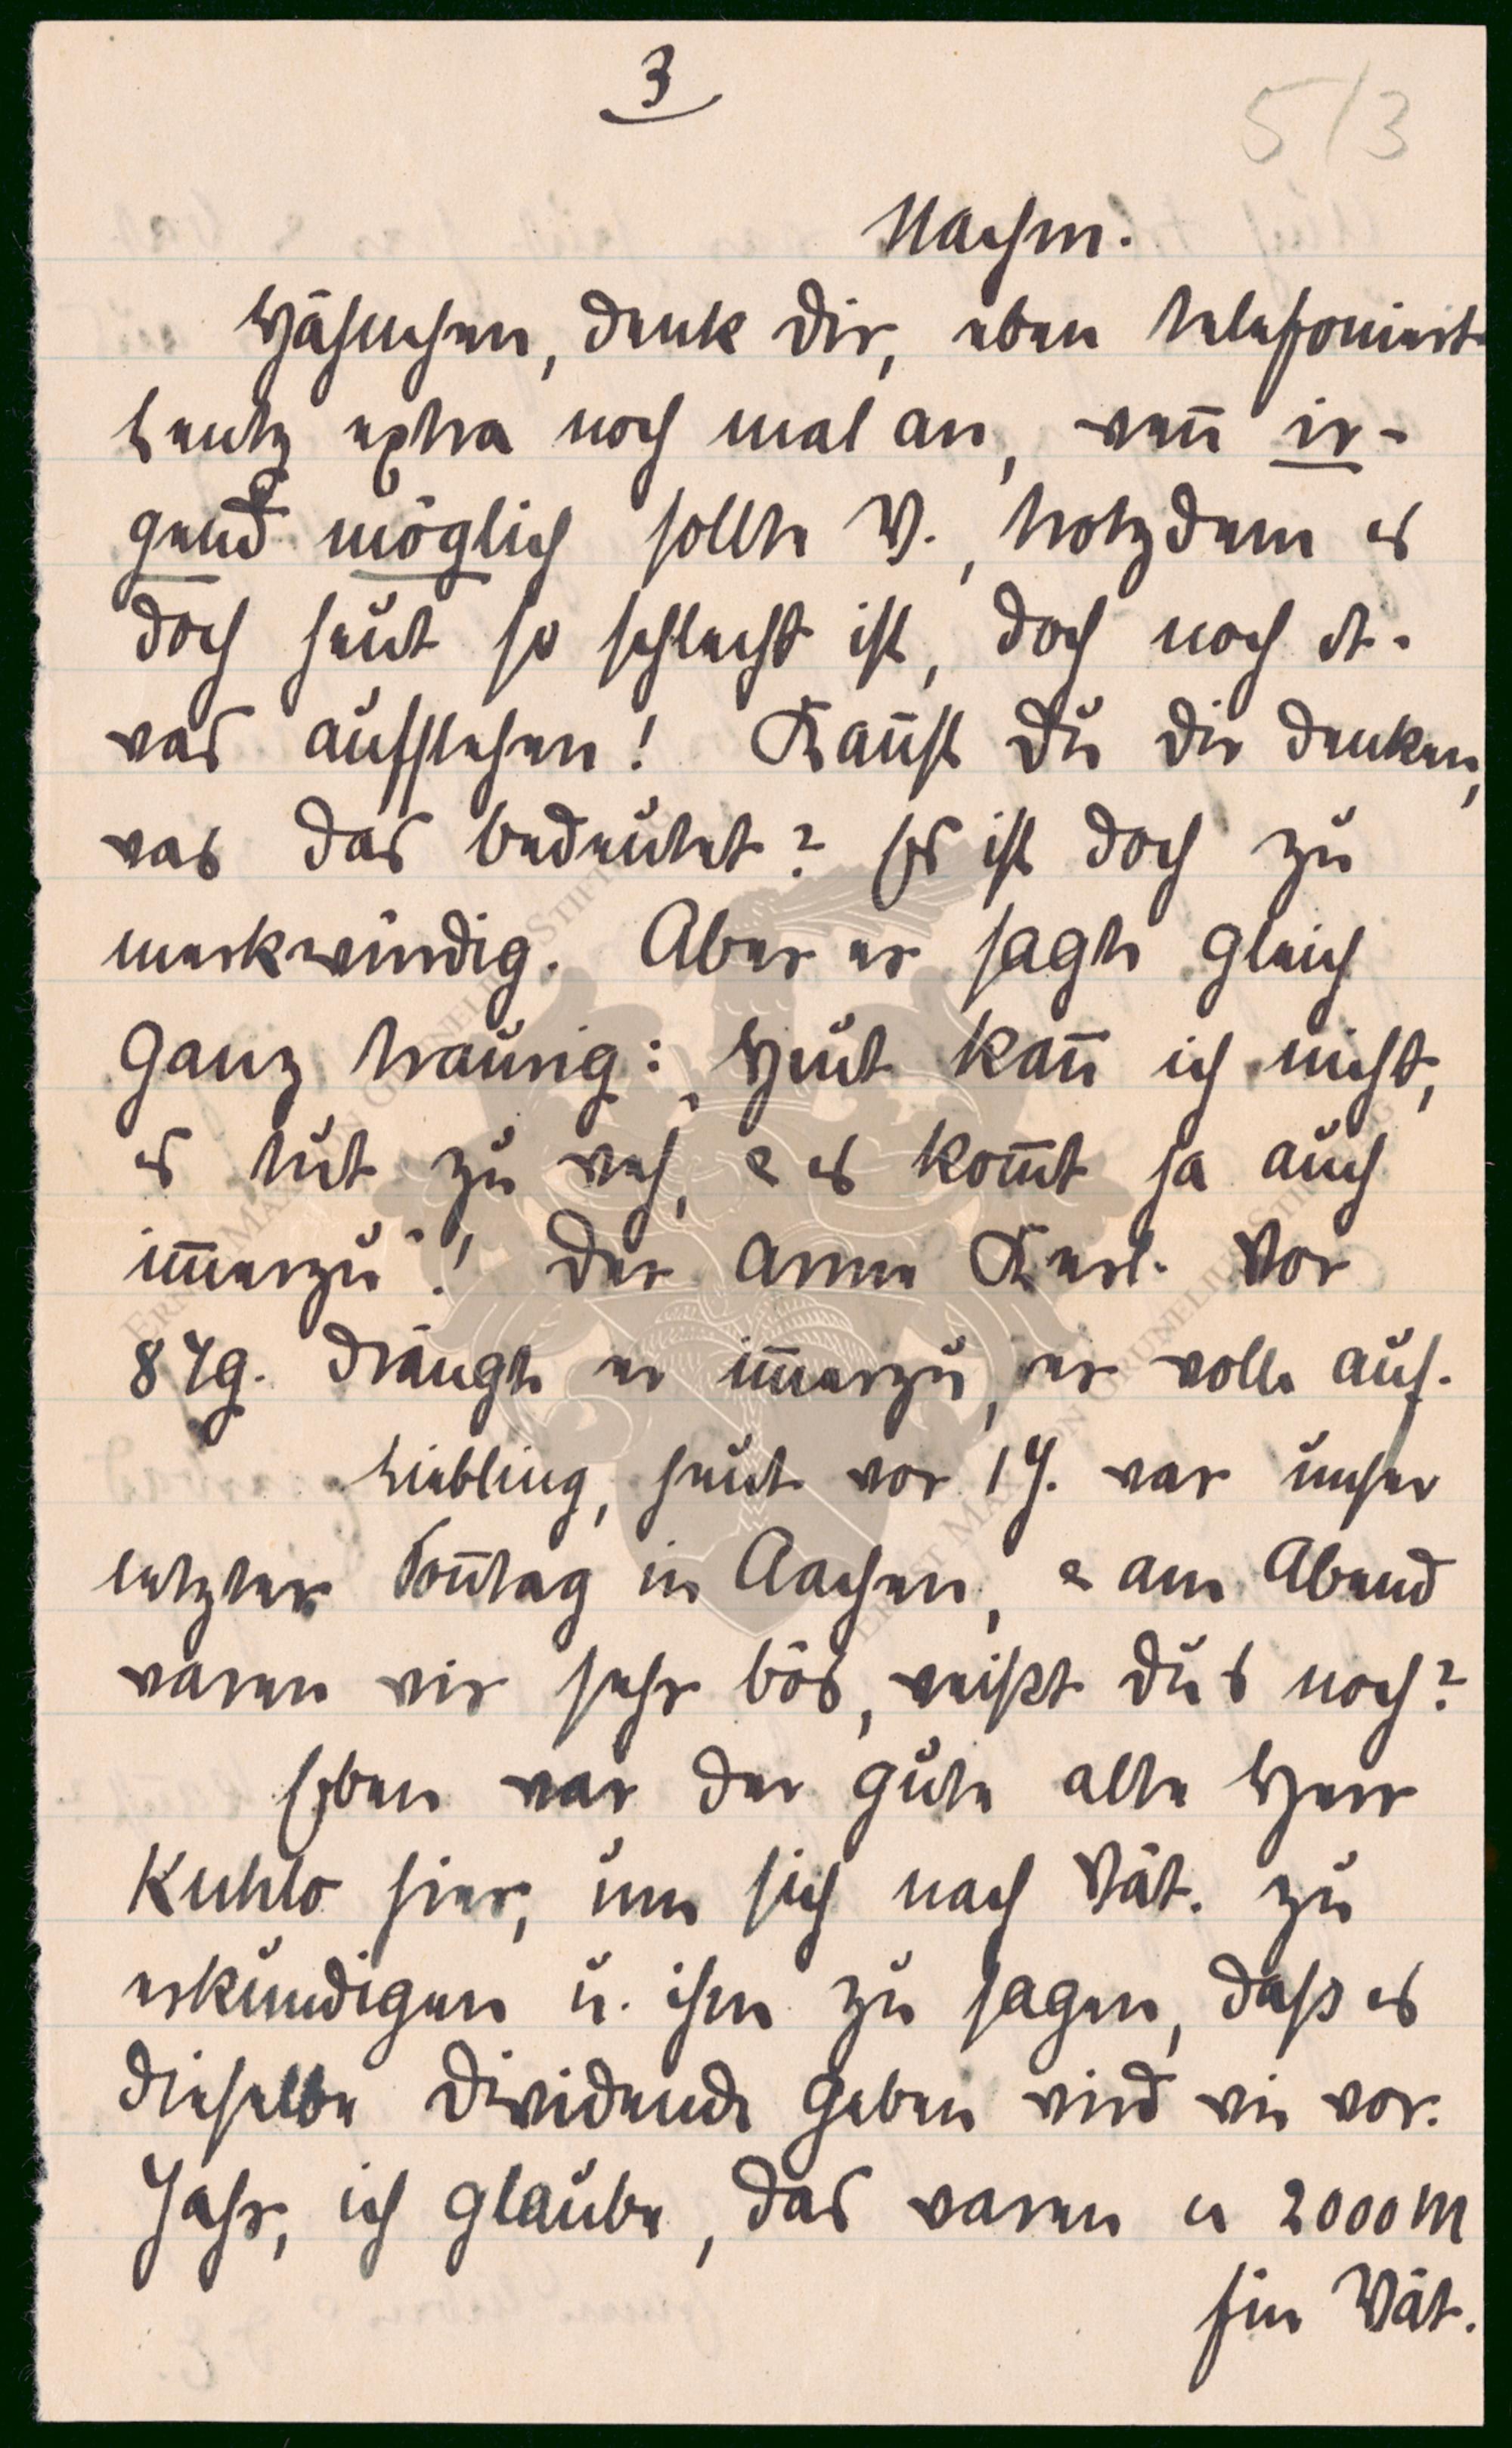 3
5/3
Nachm.
Häschen, denk Dir, eben telefoniert
Lentz extra noch mal an, wen̄ ir-
gend möglich sollte V., trotzdem es
doch heut so schlecht ist, doch noch et-
was aufstehen! Kan̄st Du Dir denken,
was das bedeutet? Es ist doch zu
merkwürdig. Aber er sagte gleich
ganz traurig: „Heut kan̄ ich nicht,
es tut zu weh, & es kom̄t ja auch
im̄erzu"! Der arme Kerl. Vor
8 Tg. drängte er im̄erzu, er wolle auf.
Liebling, heut vor 1 J. war unser
letzter Son̄tag in Aachen, & am Abend
waren wir sehr bös, weißt Du's noch?
Eben war der gute alte Herr
Kuhlo hier, um sich nach Vät. zu
erkundigen u. ihm zu sagen, daß es
dieselbe Dividende geben wird wie vor.
Jahr, ich glaube, das waren ca 2000 M
für Vät.